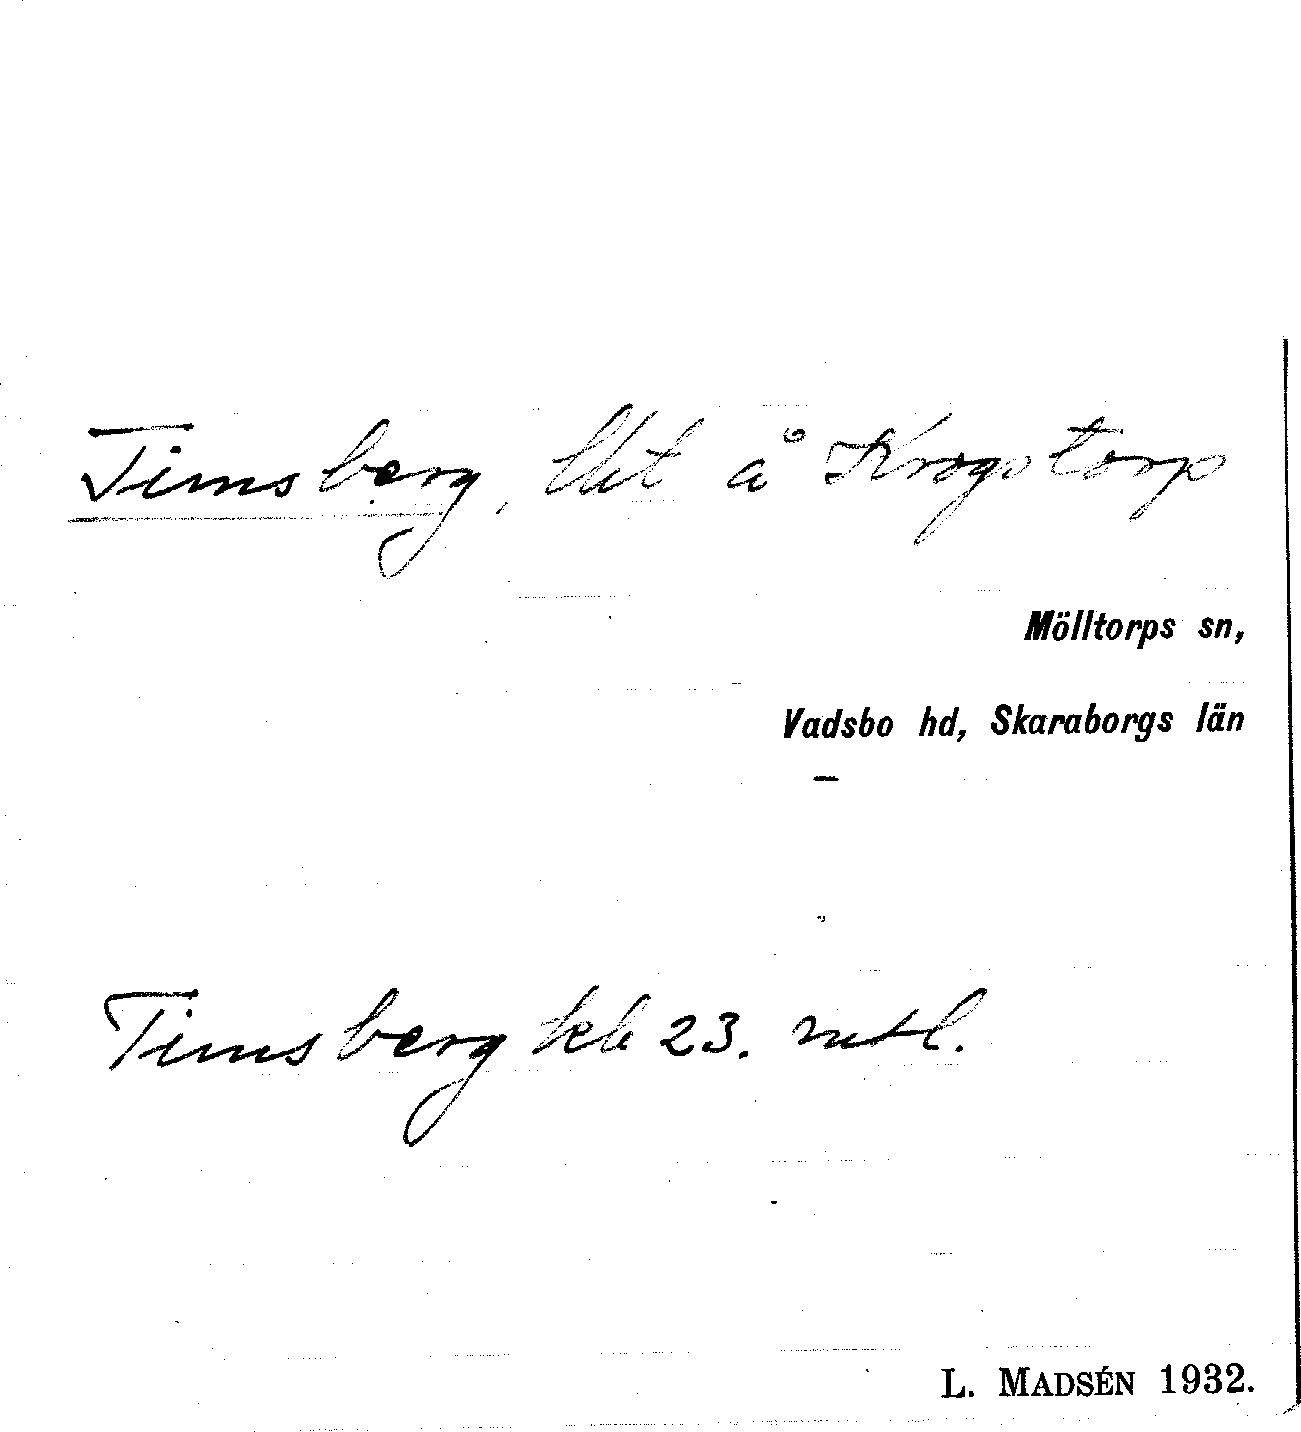 Timsberg, lht å Krogstorp
Mölltorps sn,
Vadsbo hd, Skaraborgs län
Timsberg kb 23. mtl.
L. MADSÉN 1932.